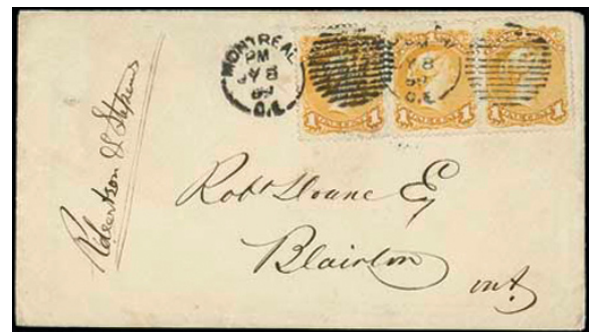 MONTREAL
PM
JY 8
69
C.E.
PM
Y 8
69
C.E.
1 ONE CENT 1
1 ONE CENT 1
1 ONE CENT 1
Robertson & Stephens
Robt Sloane E
Blairton
Ont